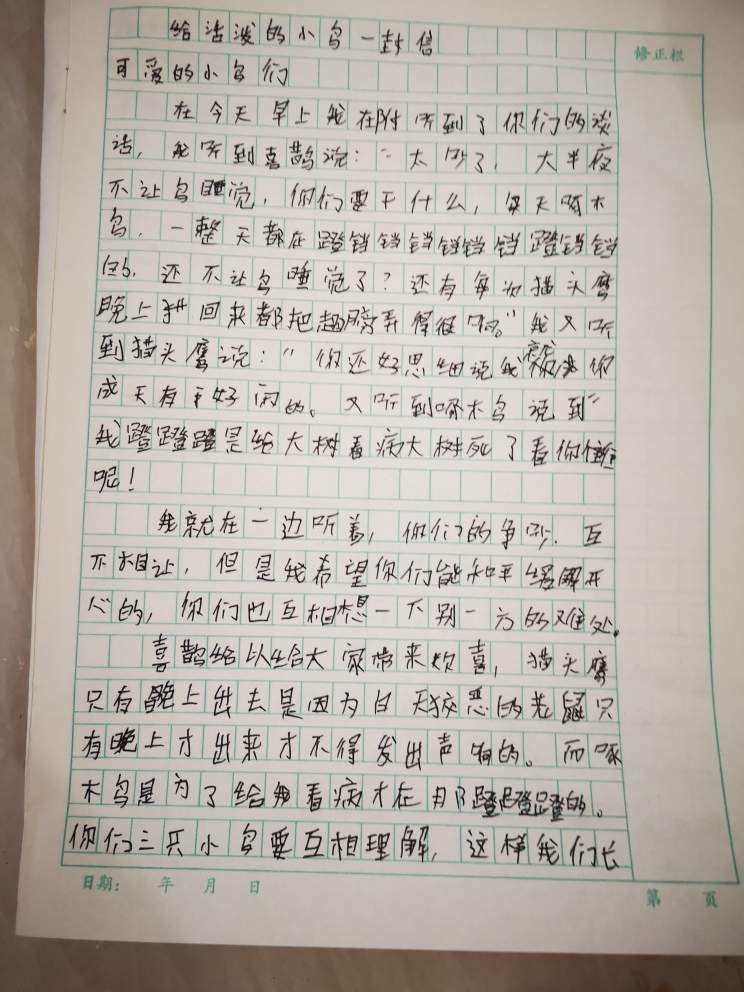 给活泼的小鸟一封信
修正栏
可爱的小鸟们
在今天早上我在附听到了你们的谈
话，我听到喜鹊说：“太吵了，大半夜
不让鸟睡觉，你们要干什么，每天啄木
鸟，一整天都在蹬铛铛铛铛铛铛蹬铛铛
的，还不让鸟睡觉了？还有每次猫头鹰
晚上回来都把翅膀弄得很响。”我又听
到猫头鹰说：“你还好思细说我你
成天有干好闲的。又听到啄木鸟说到“
我蹬蹬蹬是给大树看病大树死了看你住
呢！
我就在一边听着，你们的争吵，互
不相让，但是我希望你们能和平缓解开
心的，你们也互相想一下别一方的难处。
喜鹊给以给大家带来欢喜，猫头鹰
只有晚上出去是因为白天狡恶的老鼠只
有晚上才出来才不得发出声响的。而啄
木鸟是为了给看病才在那蹬蹬蹬的。
你们三只小鸟要互相理解，这样我们长
日期： 年 月 日
第 页